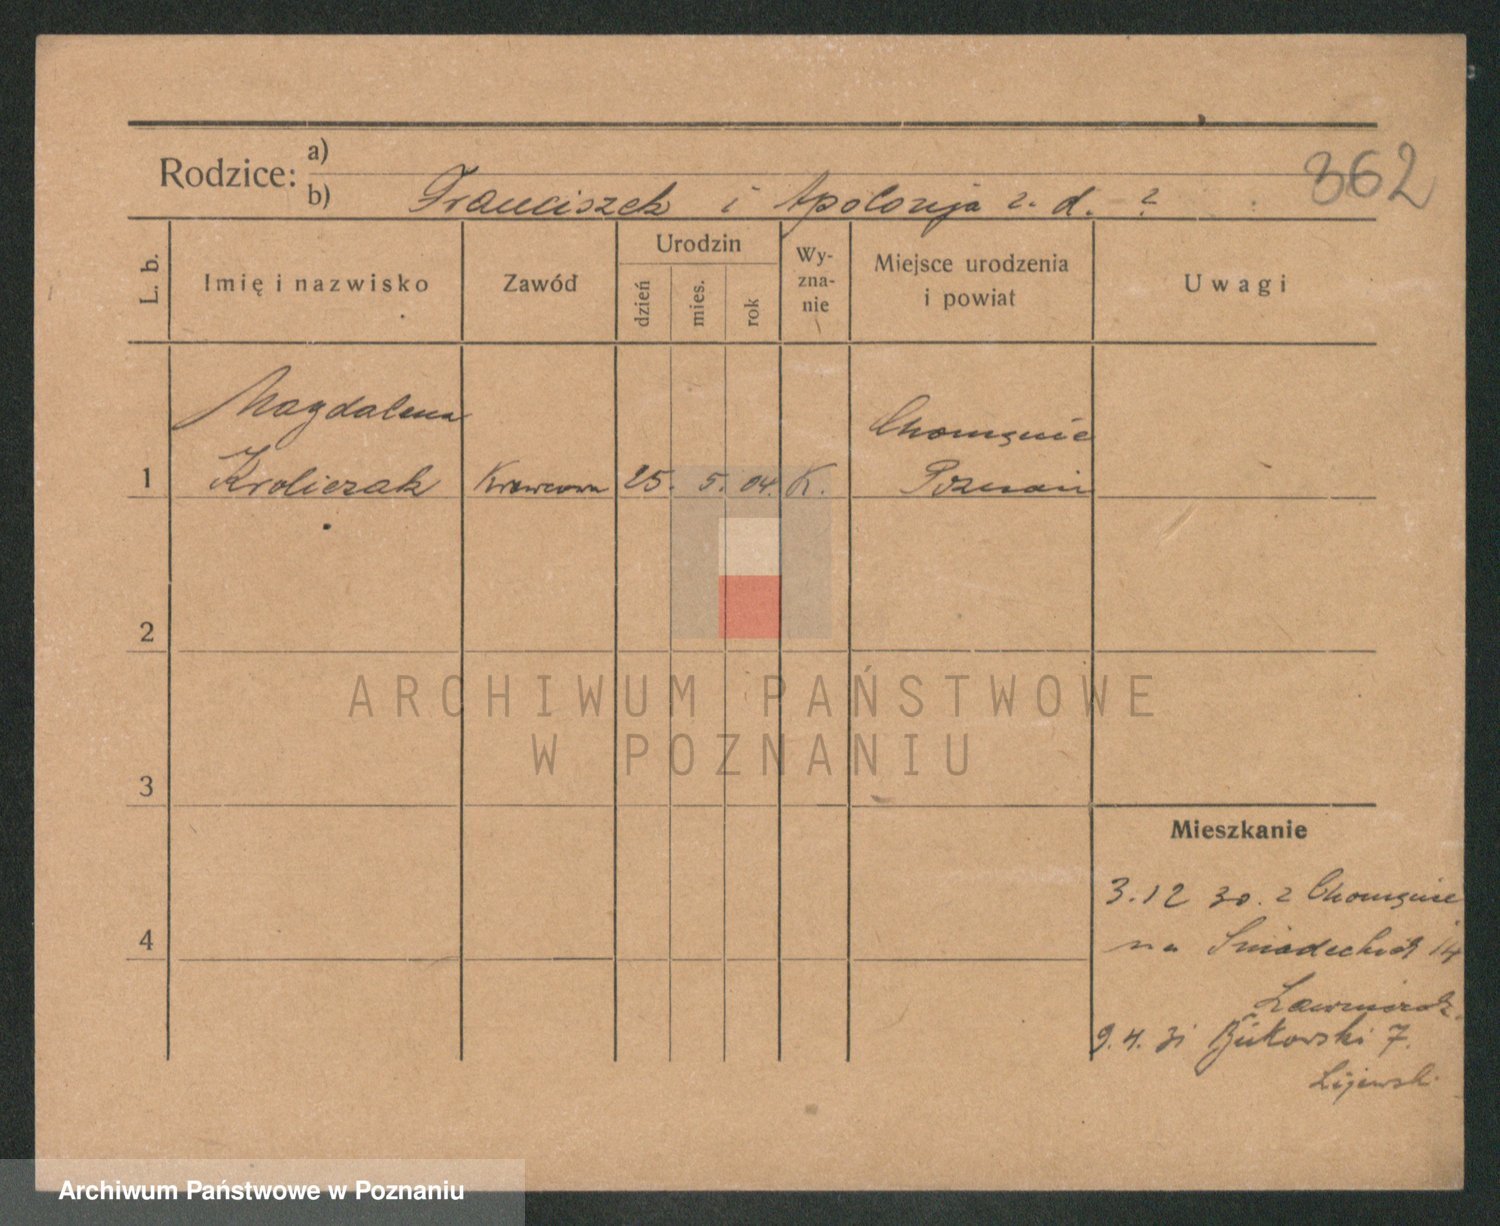 362
Rodzice: a)
b) Franciszek i Apolonja z. d. ?
L. b.
Imię i nazwisko
Zawód
Urodzin
dzień
mies.
rok
Wy-
zna-
nie
Miejsce urodzenia
i powiat
Uwagi
Magdalena
Chomęcie
1 Kroliczak Krawcowa 25. 5. 04. K. Poznań
2
ARCHIWUM PAŃSTWOWE
W POZNANIU
3
Mieszkanie
3.12 30. z Chomęcic
4
na Śniadeckich 14
9.4.31 Bukowski 7.
Lijewski
Archiwum Państwowe w Poznaniu